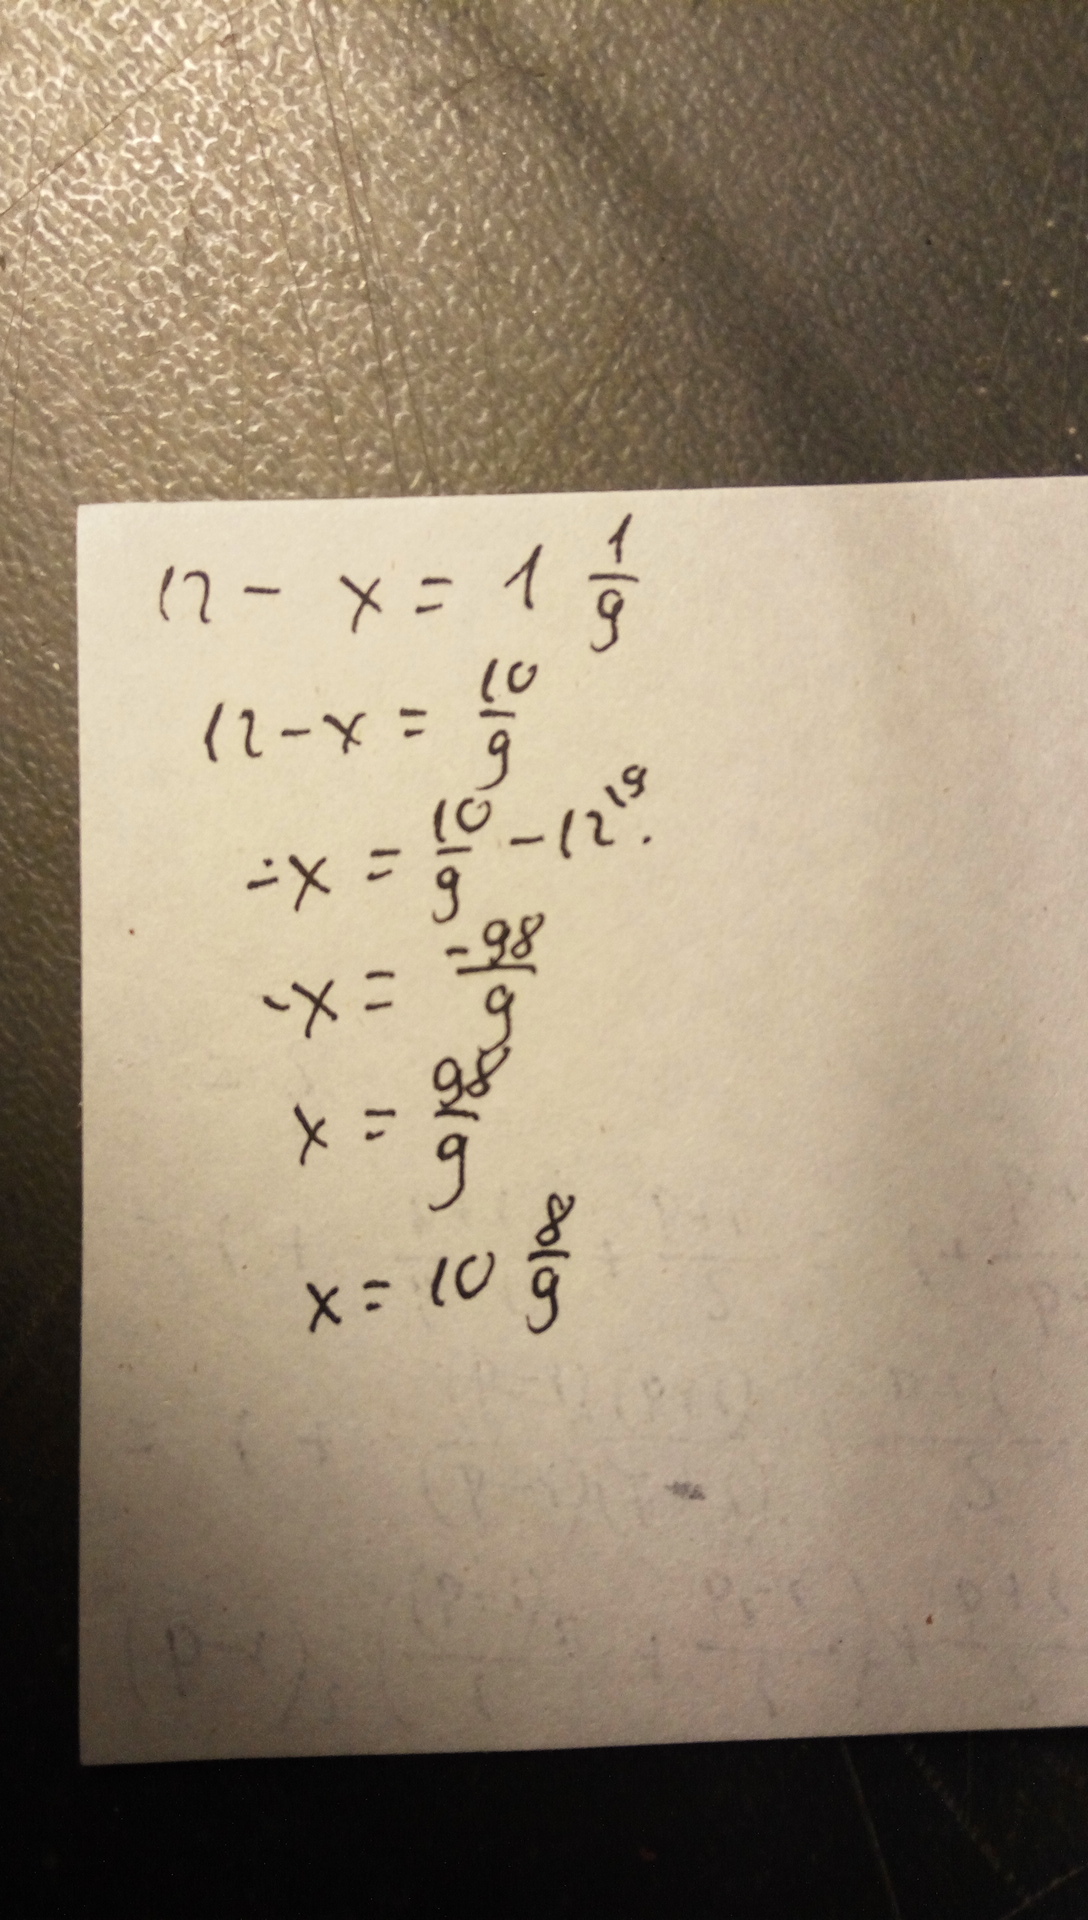 12 - x = 1 1/9
12 - x = 10/9
-x = 10/9 - 12^{\9}.
-x = -98/9
x = 98/9
x = 10 8/9